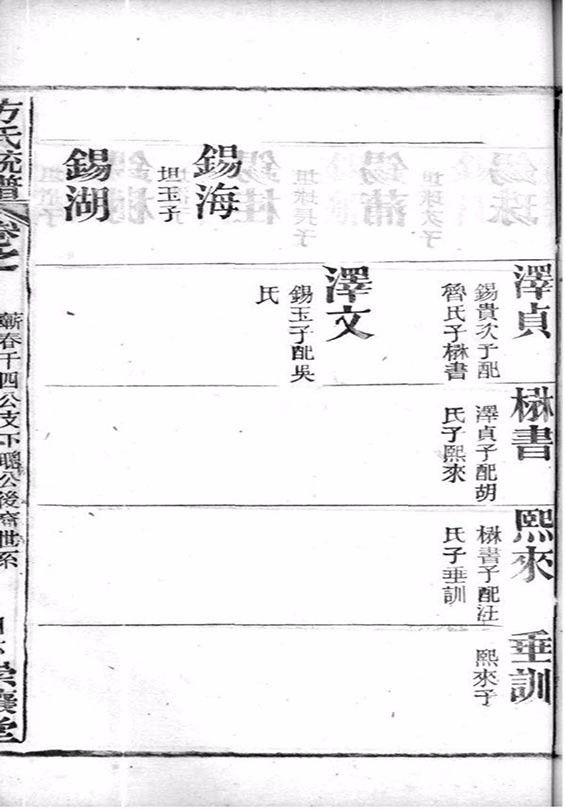 錫海
坦玉子
錫湖
澤貞
錫貴次子配
魯氏子楙書
澤文
錫玉子配吳
氏
楙書
澤貞子配胡
氏子熙來
熙來
楙書子配汪
氏子垂訓
垂訓
熙來子
方氏統譜
卷之
蘄春千四公支下聰公後裔世系